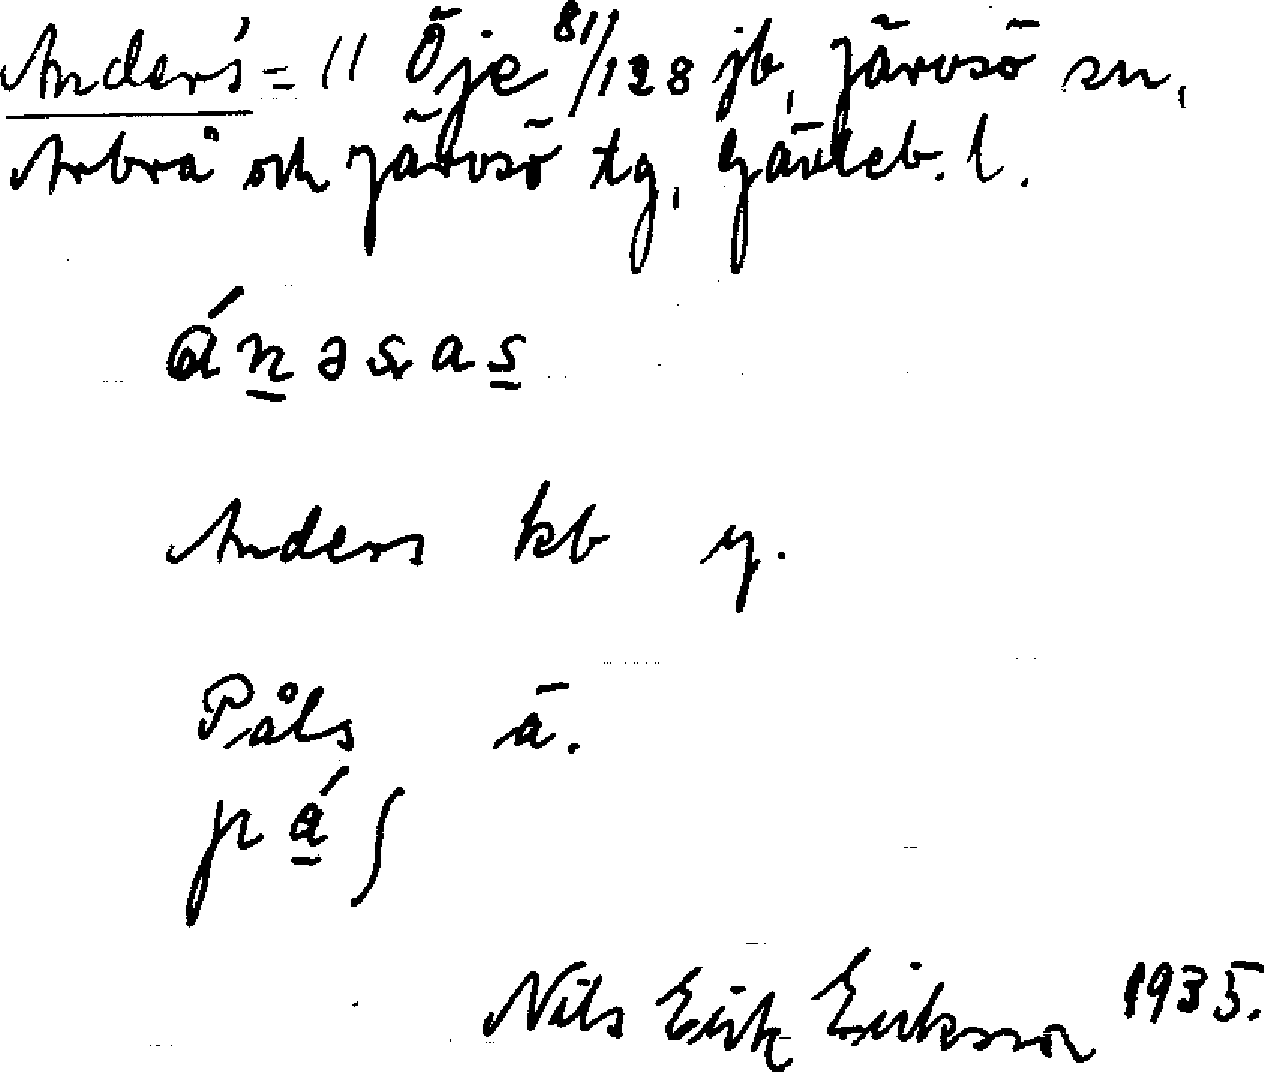 Anders = 11 Öje 81/128 jb, Järvsö sn,
Arbrå och Järvsö tg, Gävleb. l.
Anders kb y.
Påls ä.
Nils Erik Eriksson 1935.